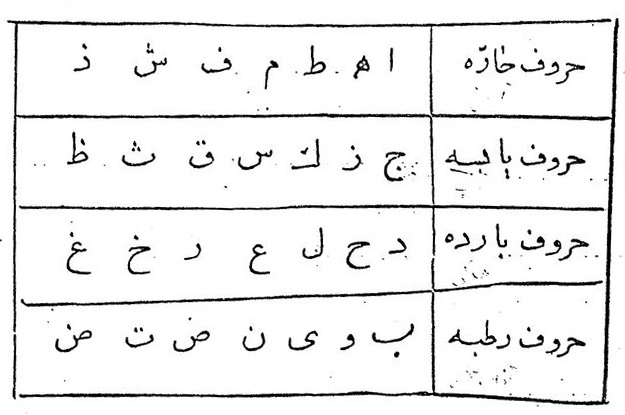 حروف حارّه ا ه ط م ف ش ذ
حروف یابسه ج ز ك س ق ث ظ
حروف بارده د ح ل ع ر خ غ
حروف رطبه ب و ی ن ض ت ض